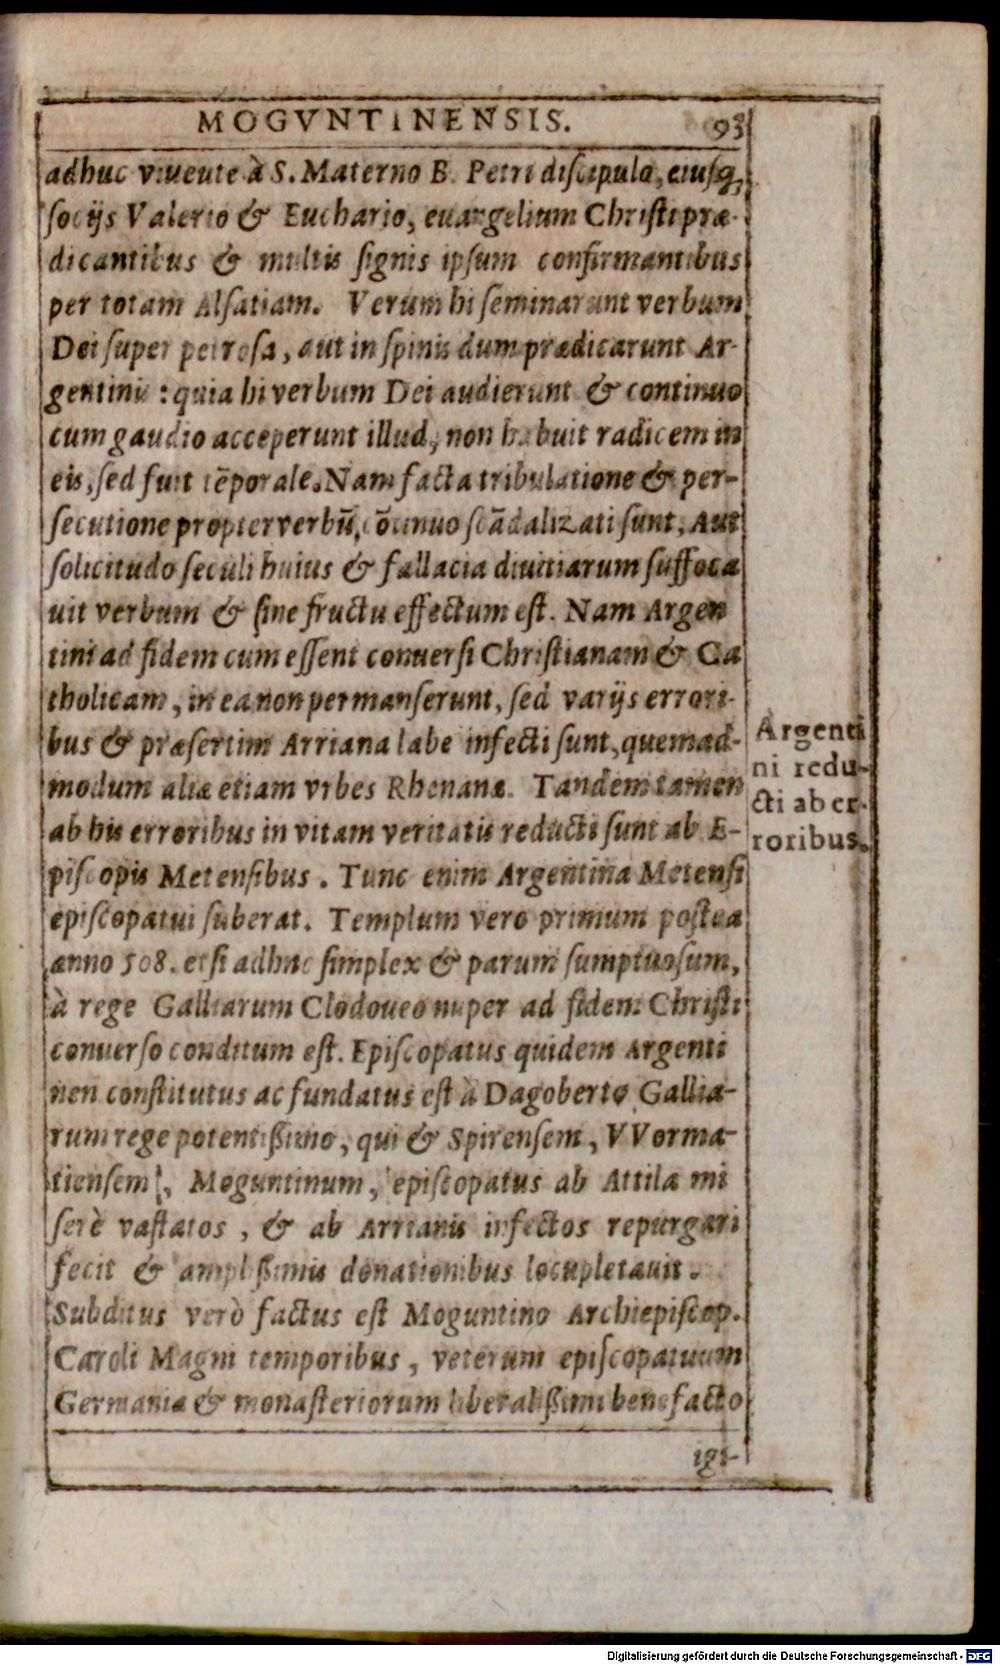 MOGVNTINENSIS. 93
adhuc viuente à S. Materno B. Petri discipulo, eiusq́;
socijs Valerio & Euchario, euangelium Christi præ-
dicantibus & multis signis ipsum confirmantibus
per totam Alsatiam. Verum hi seminarunt verbum
Dei super petrosa, aut in spinis dum prædicarunt Ar-
gentinis: quia hi verbum Dei audierunt & continuo
cum gaudio acceperunt illud, non habuit radicem in
eis, sed fuit tēporale. Nam facta tribulatione & per-
secutione propter verbū, cōtinuo scādalizati sunt, Aut
solicitudo seculi huius & fallacia diuitiarum suffoca
uit verbum & sine fructu effectum est. Nam Argen
tini ad fidem cum essent conuersi Christianam & Ca
tholicam, in ea non permanserunt, sed varijs errori-
bus & præsertim Arriana labe infecti sunt, quemad-
modum aliæ etiam vrbes Rhenanæ. Tandem tamen
ab his erroribus in vitam veritatis reducti sunt ab E-
piscopis Metensibus. Tunc enim Argentina Metensi
episcopatui suberat. Templum vero primum postea
anno 508. etsi adhuc simplex & parum sumptuosum,
à rege Galliarum Clodoueo nuper ad fidem Christi
conuerso conditum est. Episcopatus quidem Argenti
nen constitutus ac fundatus est à Dagoberto Gallia-
rum rege potentissimo, qui & Spirensem, VVorma-
tiensem, Moguntinum, episcopatus ab Attila mi
serè vastatos, & ab Arrianis infectos repurgari
fecit & amplissimis donationibus locupletauit.
Subditus verò factus est Moguntino Archiepiscop.
Caroli Magni temporibus, veterum episcopatuum
Germaniæ & monasteriorum liberalissimi benefacto
igi-
Argenti
ni redu-
cti ab er-
roribus.
Digitalisierung gefördert durch die Deutsche Forschungsgemeinschaft - DFG